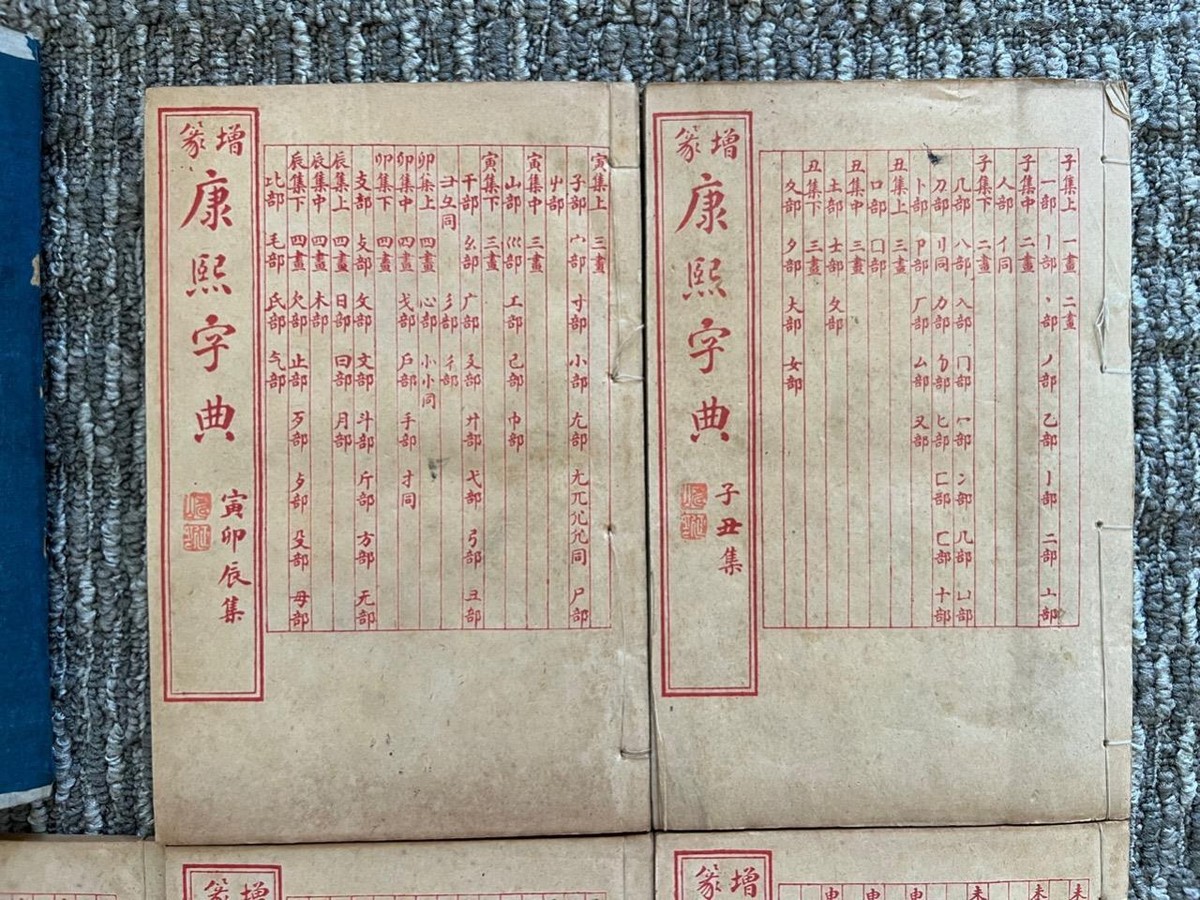 子集上 一畫 二畫
一部 丨部 丶部 丿部 乙部 亅部 二部 亠部
子集中 二畫
人部 亻同
子集下 二畫
儿部 八部 入部 冂部 冖部 冫部 几部 凵部
刀部 刂同 力部 勹部 匕部 匚部 匸部 十部
卜部 卩部 厂部 厶部 又部
丑集上 三畫
口部 囗部
丑集中 三畫
土部 士部 夂部
丑集下 三畫
夊部 夕部 大部 女部
增篆
康熙字典
子丑集
寅集上 三畫
子部 宀部 寸部 小部 尢部 兀 同 尸部
屮部
寅集中 三畫
山部 巛部 工部 己部 巾部
寅集下 三畫
干部 幺部 广部 廴部 廾部 弋部 弓部 彐部
彐彑同 彡部 彳部
卯集上 四畫 心部 小同
卯集中 四畫 戈部 戶部 手部 扌同
卯集下 四畫
支部 攴部 攵部 文部 斗部 斤部 方部 无部
辰集上 四畫 日部 曰部 月部
辰集中 四畫 木部
辰集下 四畫 欠部 止部 歹部 歺部 殳部 毋部
比部 毛部 氏部 气部
增篆
康熙字典
寅卯辰集
未
未
未
申
申
申
增篆
增篆